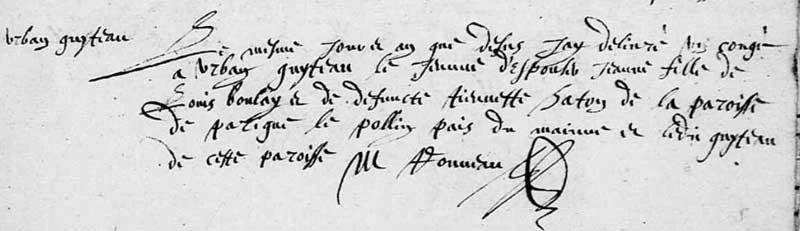 urban guyteau
Le mesme jour et an que dessus jay delivré un congé
a Urban guyteau le Jeune d'espouser Jeanne fille de
Louis boulay et de deffuncte tiennette haton de la paroisse
de parigne le pollin pais du maine et ledit guyteau
de ceste paroisse